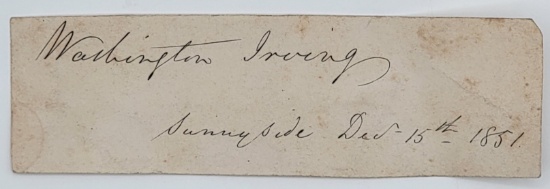 Washington Irving
Sunnyside Decr 15th 1851.